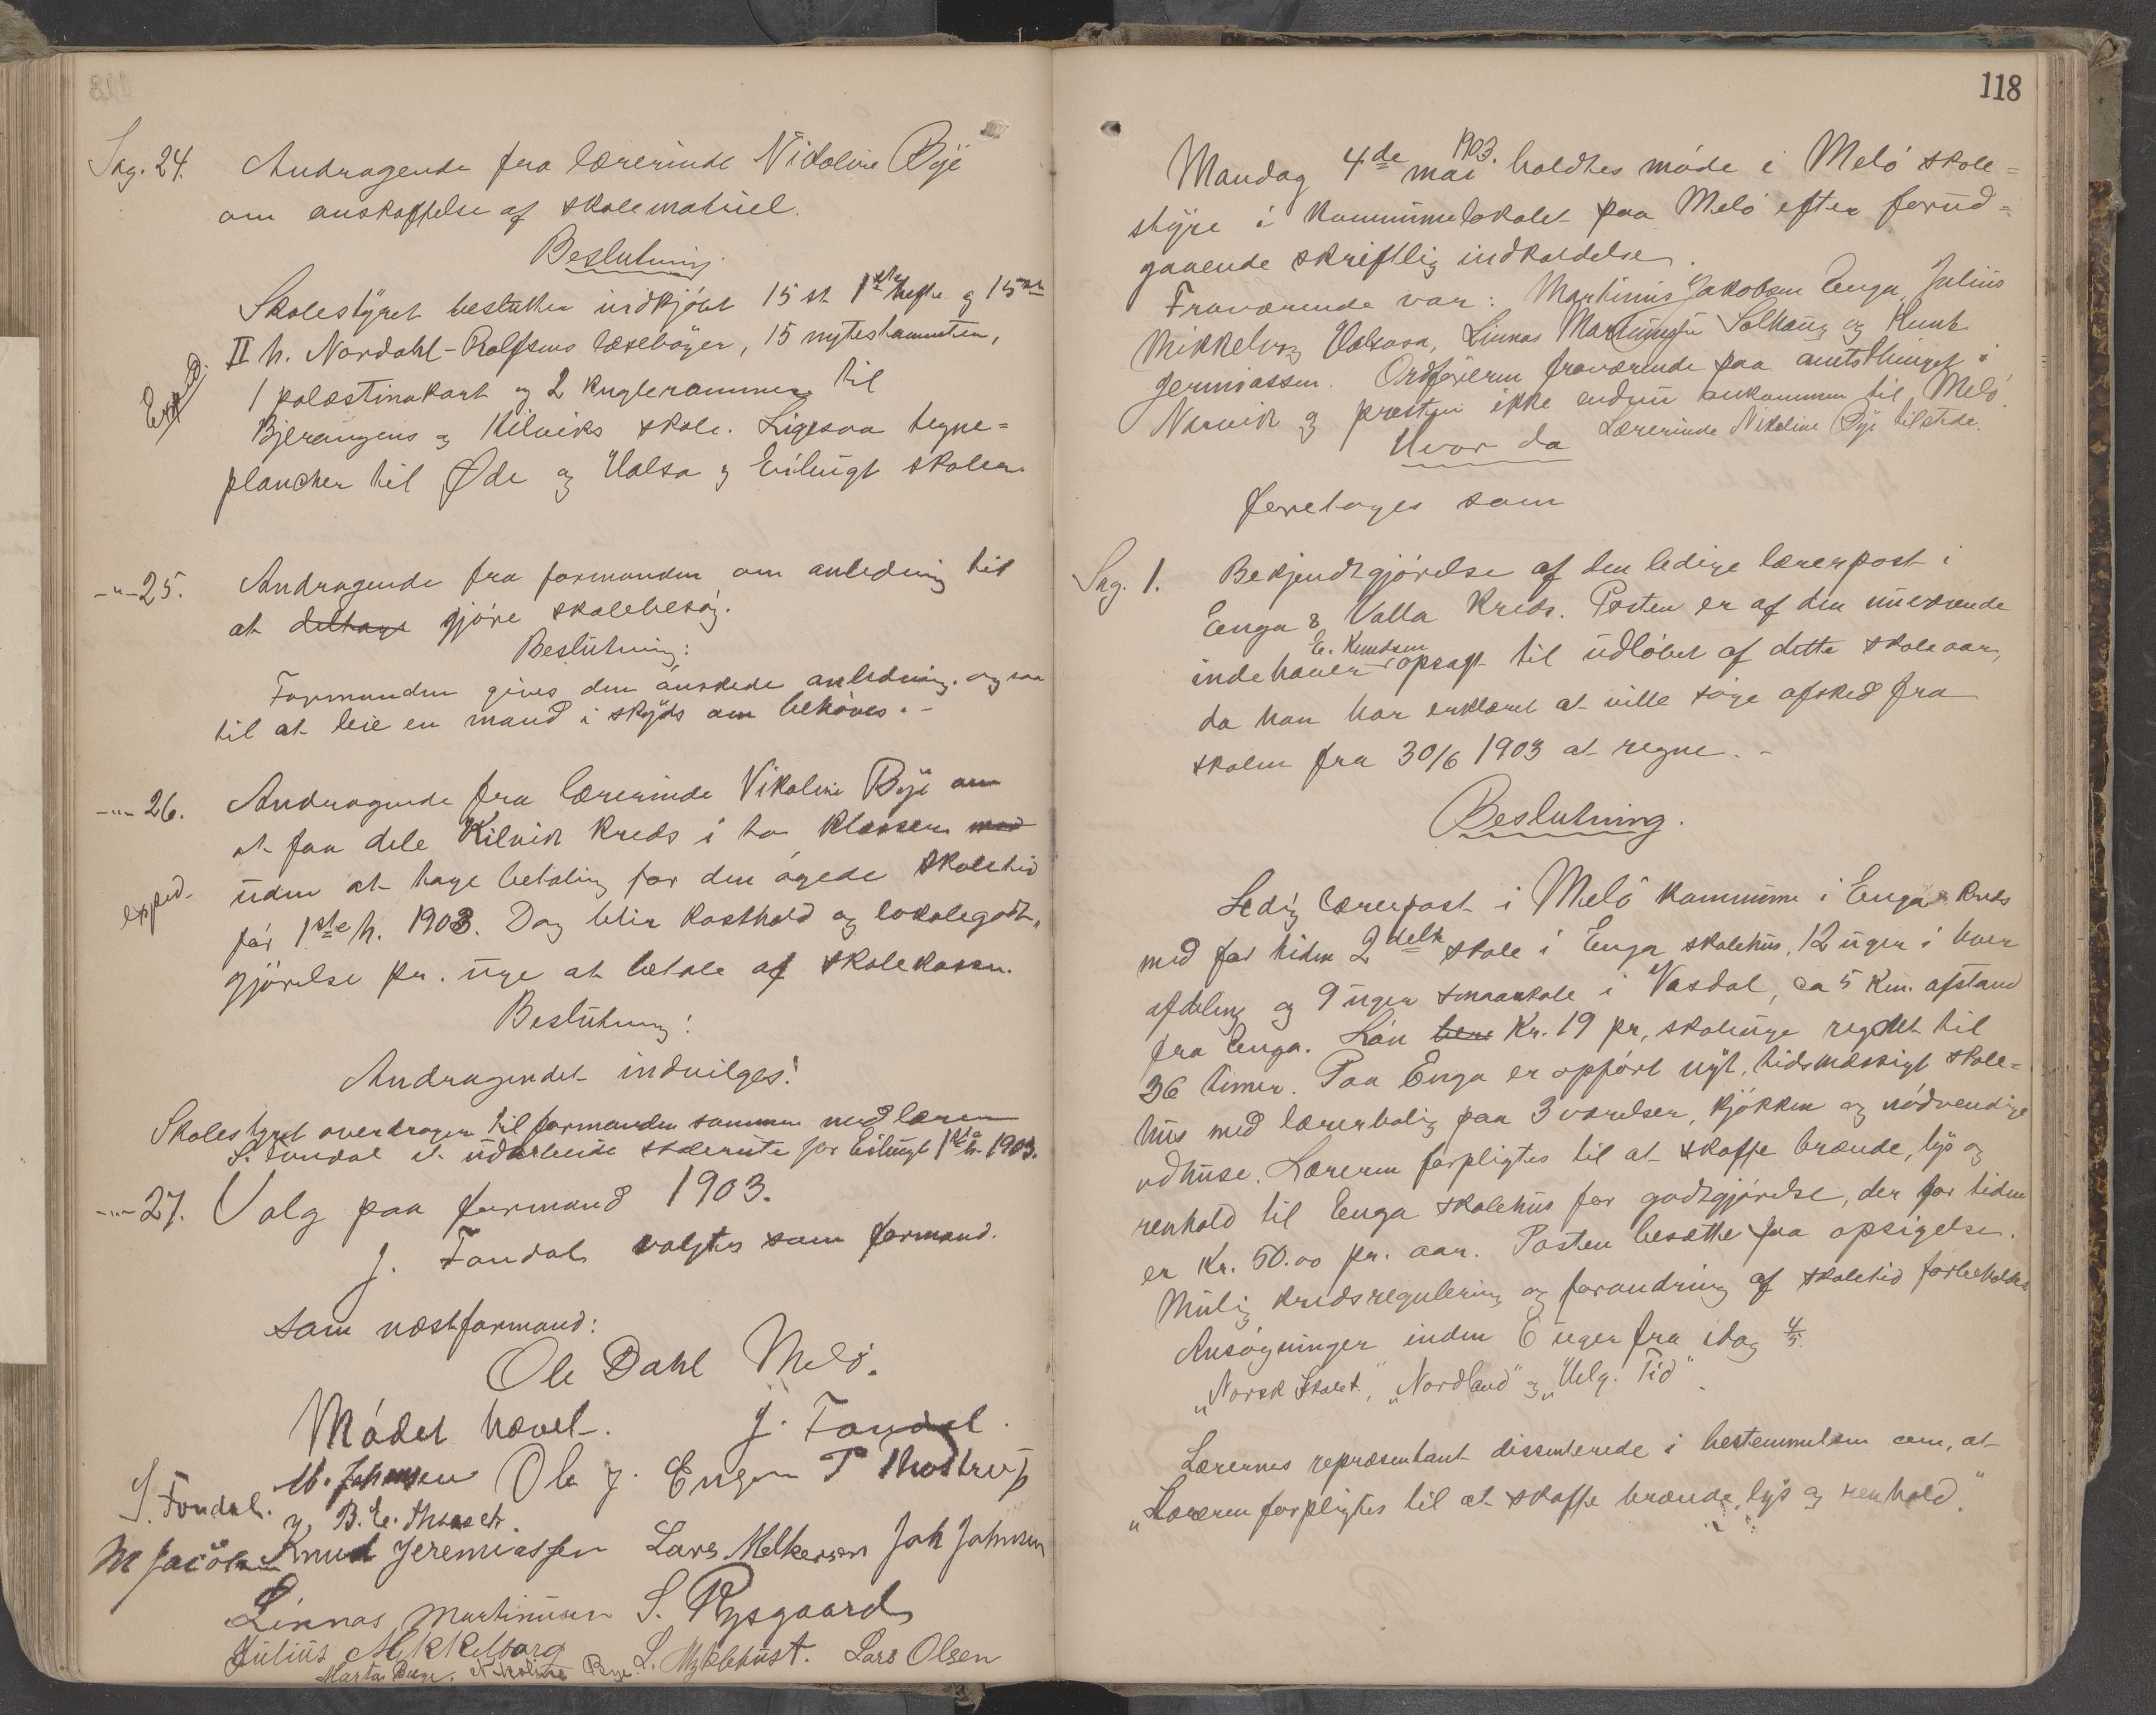 Sag. 24. Andragende fra lærerinde Nikoline Bye
om anskaffelse af skolemateriel.
Beslutning
Skolestyret beslutter indkjöbt 15 st. 1ste hefte og 15 st.
II h. Nordahl-Rolfsens læsebøger, 15 nytestamenten,
Exped.
1 palæstinakart og 2 kuglerammer til
Bjerangens og Kilviks skole. Ligesaa tegne=
plancher til Øde og Valsa og Eilingt skoler.
-"-25. Andragende fra formanden om anledning til
at deltage gjöre skolebesög.
Beslutning:
Formanden gives den önskede anledning, og saa
til at leie en mand i skyds om behöves. -
-"-26. Andragende fra lærerinde Nikoline Bye om
at faa dele Kilvik kreds i to klasser med
exped.
uden at tage betaling for den ögede skoletid
för 1ste h. 1903. Dog blir kosthold og lokalegodt,
gjörelse pr. uge at betale af skolekassen.
Beslutning!
Andragendet indvilges!
Skolestyret overdrager til formanden sammen med læreren
S. Fondal at udarbeide skolerute for Eilingt 1ste h. 1903.
-"-27. Valg paa formand 1903.
J. Fondal valgtes som formand.
Som næstformand:
Ole Dahl Melö.
Mödet hævet. J. Fondal.
M. Johansen Ole J. Engen P Thostrup
S. Fondal. B. E.
M Jacobsen Knud Jeremiassen Lars Melkersen Joh Johnsen
Linnas Martinusen S. Rysgaard
Julius Mikkelborg L. Myklebust. Lars Olsen
Marta Nikoline Bye.
118
Mandag 4de mai 1903. holdtes möde i Melö skole=
styre i kommunelokalet paa Melö efter forud=
gaaende skriftlig indkaldelse.
Fraværende var: Martinus Jakobsen Enga, Julius
Mikkelborg Valsosa, Linnas Martinusen Solhaug og Knut
Jermiassen. Ordføreren fraværende paa amtsthinget i
Narvik og presten ikke endnu ankommen til Melö.
Hvor da Lærerinde Nikoline Bye tilstede.
foretoges som
Sag. 1. Bekjendtgjörelse af den ledige lærerpost i
Enga & Valla kreds. Posten er af den nuværende
indehaver E. Knudsen opsagt til udløbet af dette skoleaar,
da han har erklæret at ville söge afsked fra
skolen fra 30/6 1903 at regne. -
Beslutning.
Ledig lærerpost i Melö kommune i Enga kreds
med for tiden 2delt skole i Enga skolehus, 12 uger i hver
afdeling og 9 uger smaaskole i Vasdal, ca 5 km. afstand
fra Enga. Lön Kr. 19 pr. skoleuge regnet til
36 timer. Paa Enga er opfört nyt, tidsmæssigt skole=
hus med lærerbolig paa 3 værelser, kjökken og nödvendige
udhuse. Læreren forpligtes til at skaffe brænde, lys og
renhold til Enga skolehus for godtgjörelse, der for tiden
er Kr. 50.00 pr. aar. Posten besættes paa opsigelse.
Mulig kredsregulering og forandring af skoletid forbeholdes
Ansögninger inden 6 uger fra idag 4/5.
"Norsk Skolet.", "Nordland" og "Helg. Tid".
Lærernes repræsentant dissenterede i bestemmelsen om, at
"Læreren forpligtes til at skaffe brænde, lys og renhold".